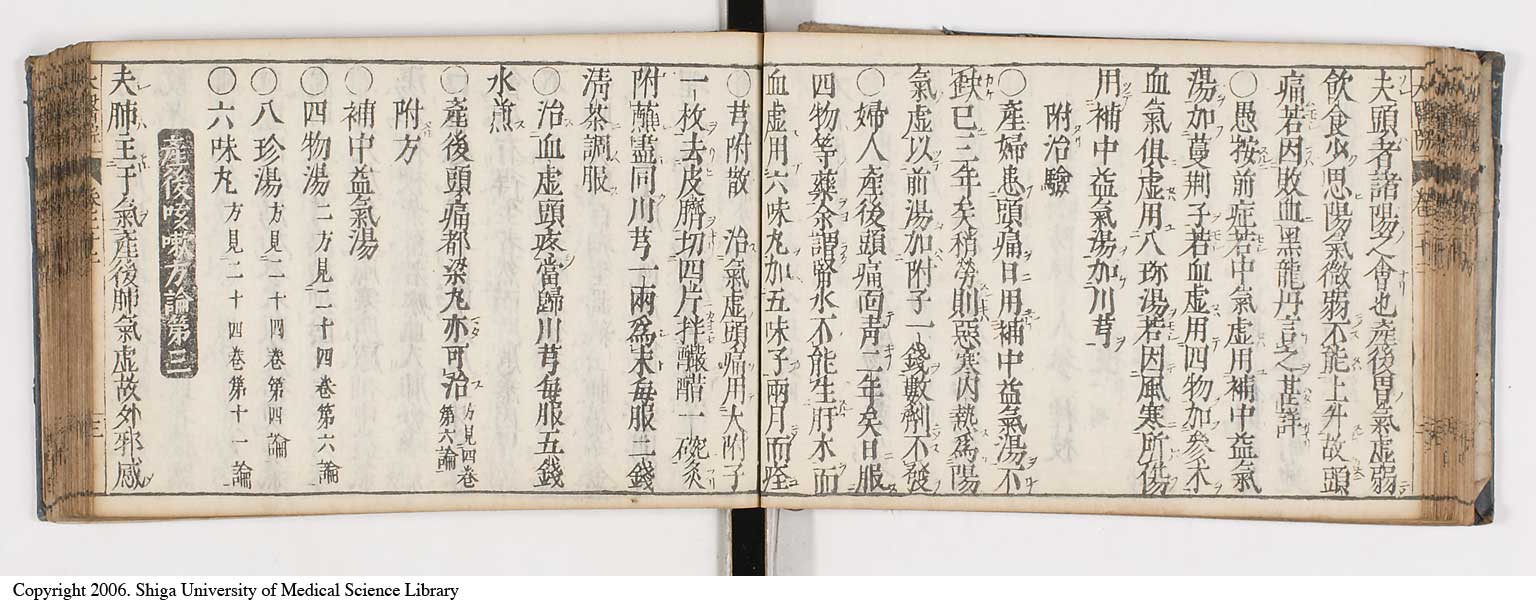 夫頭者諸陽之會也產後胃氣虛弱
飲食少思陽氣微弱不能上升故頭
痛若因敗血黑龍丹言之甚詳
〇愚按前症若中氣虛用補中益氣
湯加蔓荆子若血虛用四物加參朮
血氣俱虛用八珍湯若因風寒所傷
用補中益氣湯加川芎
附治驗
〇產婦患頭痛日用補中益氣湯不
缺已三年矣稍勞則惡寒內熱爲陽
氣虛以前湯加附子一錢數劑不發
〇婦人產後頭痛面青二年矣日服
四物等藥余謂腎水不能生肝木而
血虛用六味丸加五味子兩月而痊
〇芎附散 治氣虛頭痛用大附子
一枚去皮臍切四片拌釅醋一碗炙
附蘸盡同川芎一兩爲末每服二錢
淸茶調服
〇治血虛頭疼當歸川芎每服五錢
水煎
〇產後頭痛都梁丸亦可治 方見四卷第六論
附方
〇補中益氣湯
〇四物湯 二方見二十四卷第六論
〇八珍湯 方見二十四卷第四論
〇六味丸 方見二十四卷第十一論
產後咳嗽方論第三
夫肺主于氣產後肺氣虛故外邪感
三
Copyright 2006. Shiga University of Medical Science Library